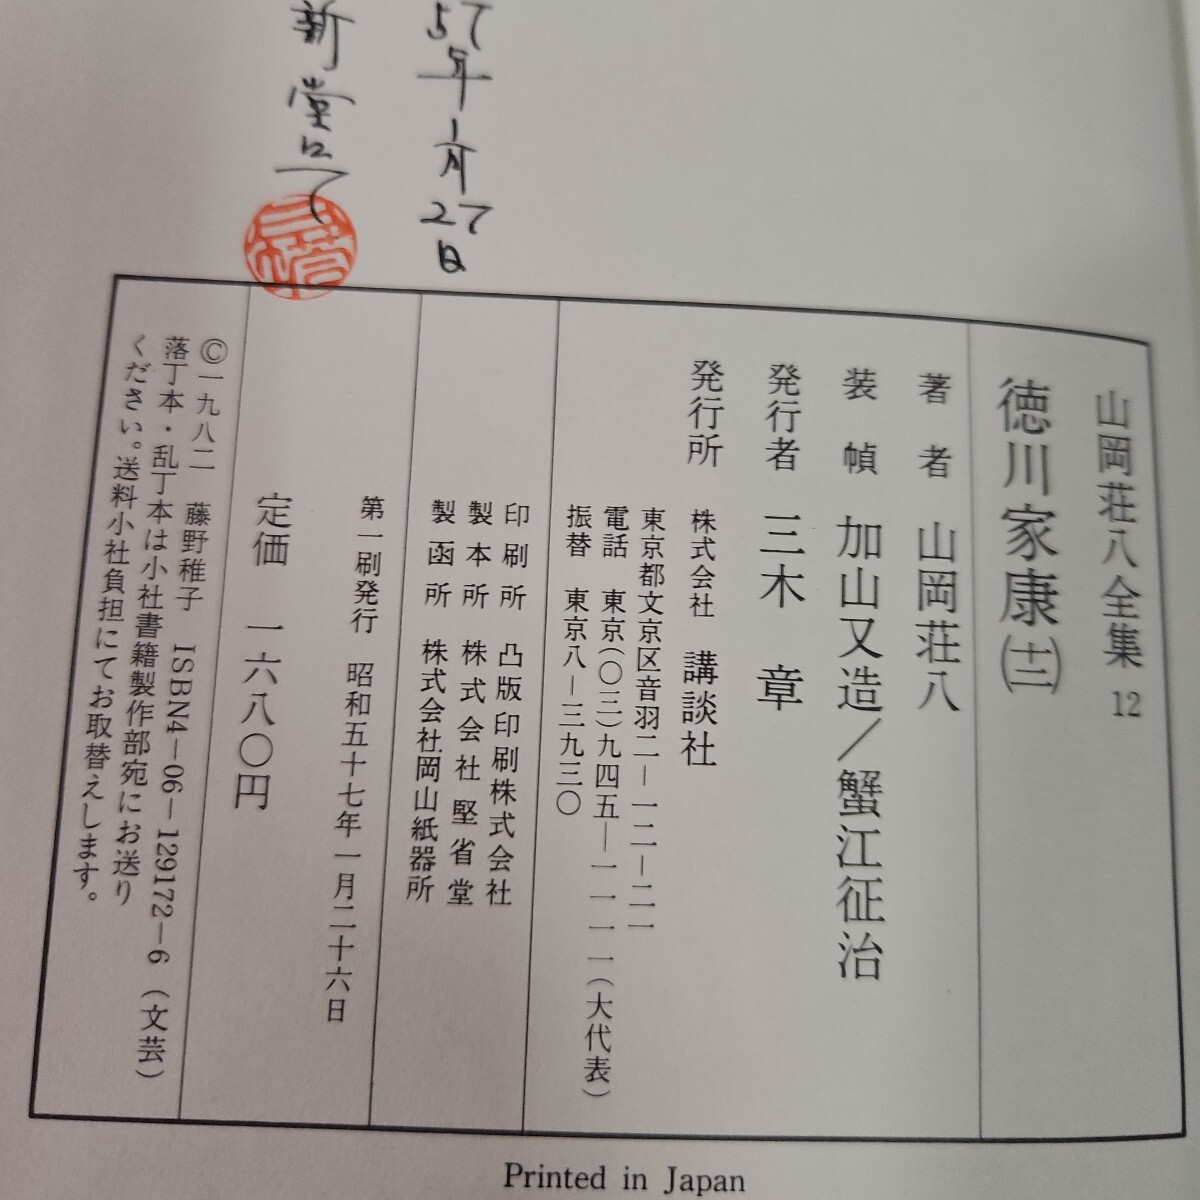 57年1月27日
新堂にて
山岡荘八全集 12
徳川家康㈫
著者 山岡荘八
装幀 加山又造/蟹江征治
発行者 三木 章
発行所 株式会社 講談社
東京都文京区音羽二―一二―二一
電話 東京(〇三)九四五―一一一一(大代表)
振替 東京八―三九三〇
印刷所 凸版印刷株式会社
製本所 株式会社堅省堂
製函所 株式会社岡山紙器所
第一刷発行 昭和五十七年一月二十六日
定価 一六八〇円
©一九八二 藤野稚子 ISBN4―06―129172―6(文芸)
落丁本・乱丁本は小社書籍製作部宛にお送り
ください。送料小社負担にてお取替えします。
Printed in Japan